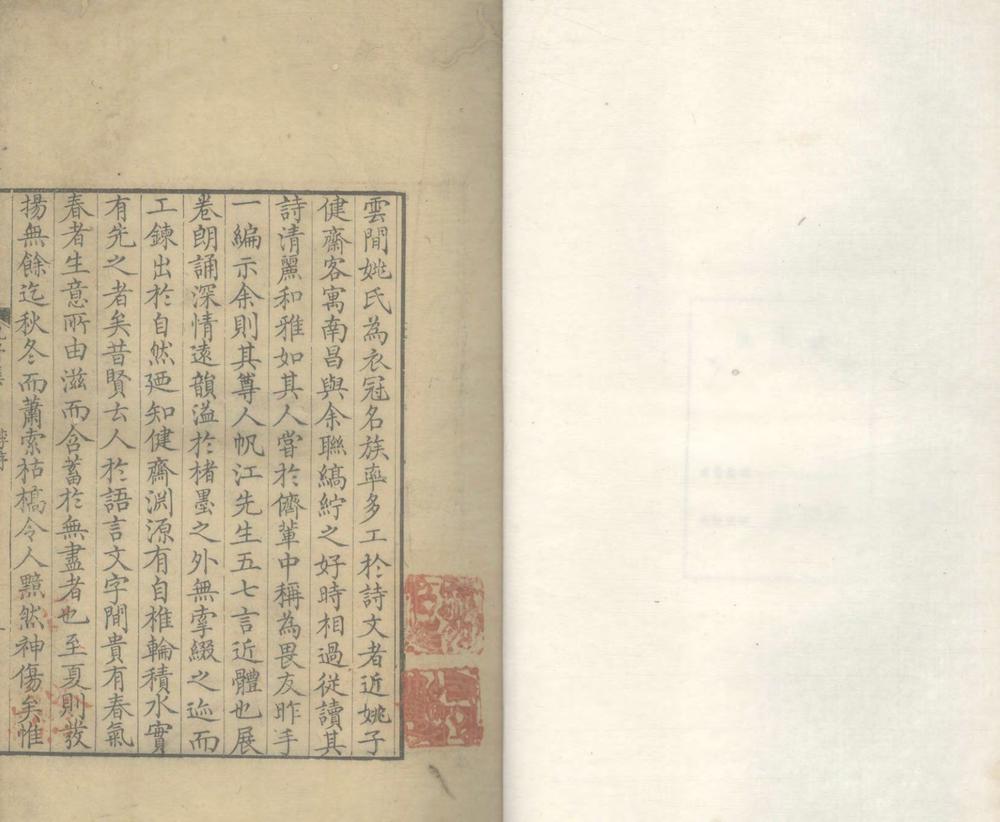 雲間姚氏為衣冠名族率多工於詩文者近姚子
健齋客寓南昌與余聯縞紵之好時相過從讀其
詩清麗和雅如其人嘗於儕輩中稱為畏友昨手
一編示余則其尊人帆江先生五七言近體也展
卷朗誦深情遠韻溢於楮墨之外無掔綴之迹而
工鍊出於自然廼知健齋淵源有自椎輪積水實
有先之者矣昔賢去人於語言文字間貴有春氣
春者生意所由滋而含蓄於無盡者也至夏則發
揚無餘迄秋冬而蕭索枯槁令人黯然神傷矣惟